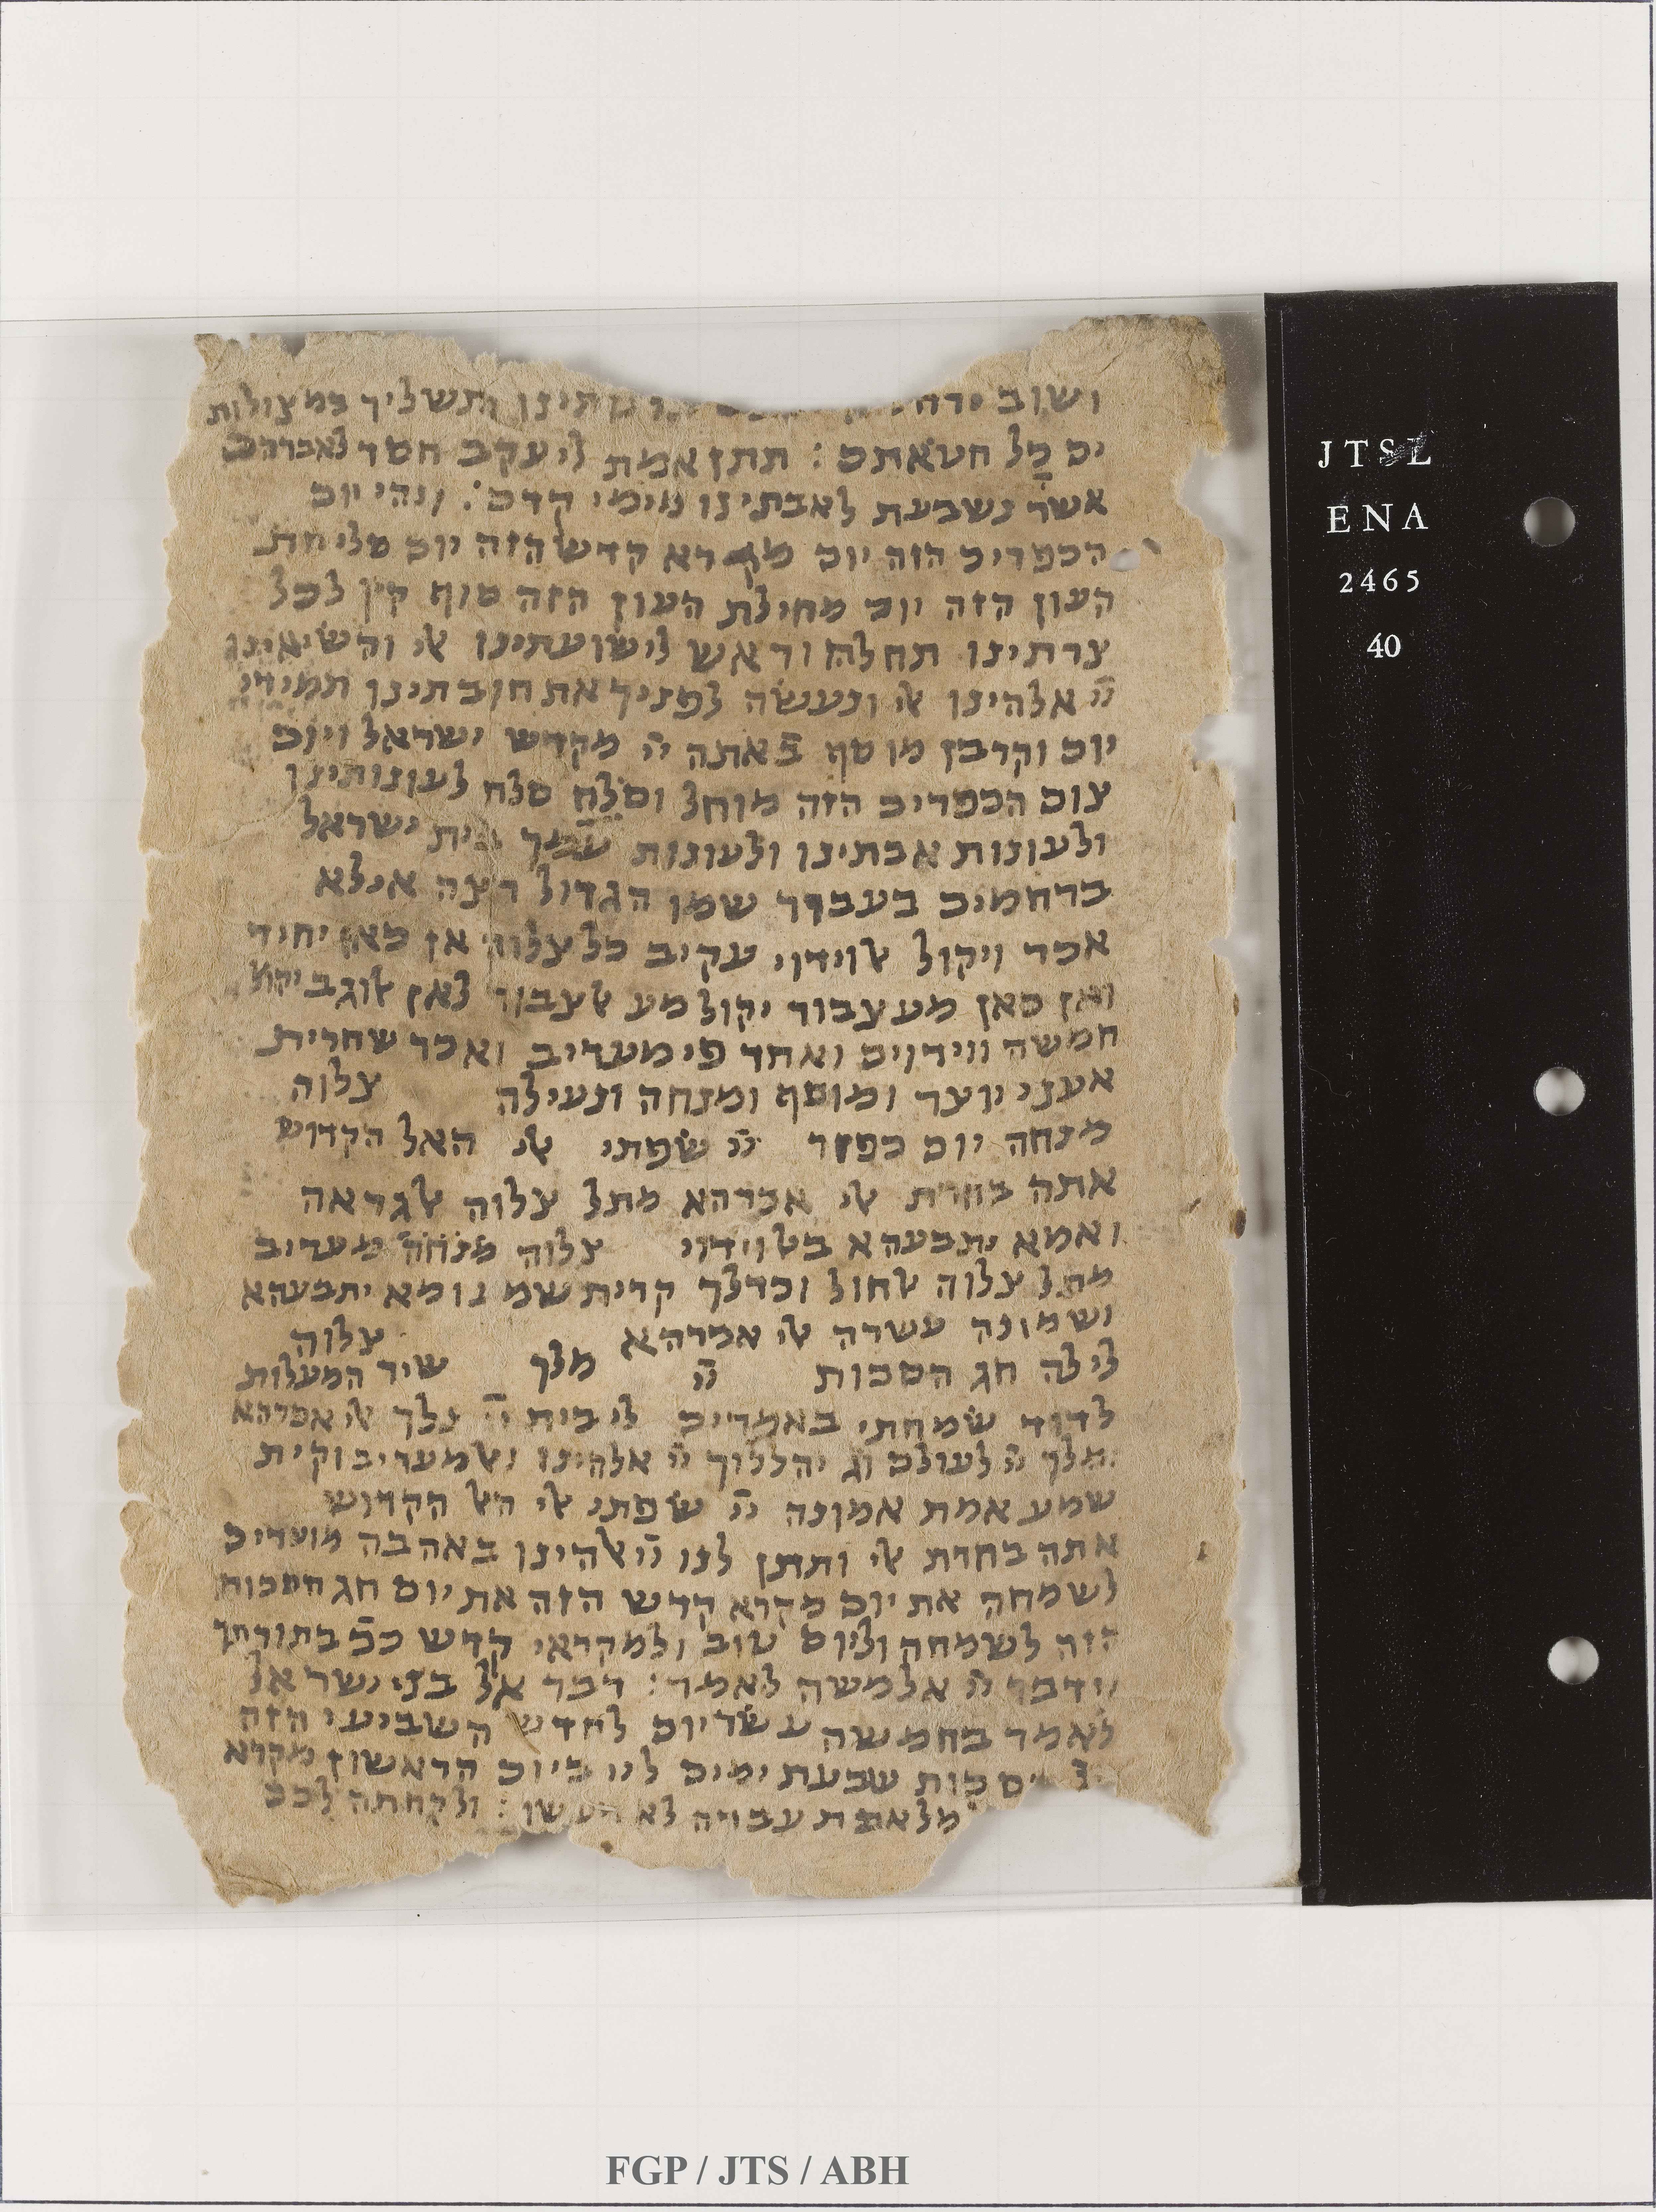 ושוב ותשליך במצולות
ים כל חטאתם : תתן אמת ליעקב חסד לאברהם
אשר נשבעת לאבתינו מימי קדם : ויהי יום
הכפרים הזה יום מקרא קדש הזה יום סליחת
העון הזה יום מחילת העון הזה סוף קץ לכל
צרתינו תחלה וראש לישועתינו אלי והשיאינו
יי אלהינו אלי ונעשה לפניך את חובתינו תמידי
יום וקרבן מוסף ב אתה יי מקדש ישראל ויום
צום הכפרים הזה מוחל וסלח סלח לעונותינו
ולעונות אבתינו ולעונות עמך בית ישראל
ברחמים בעבור שמו הגדול רצה אילא
אכר ויקול אלוידוי עקיב כל צלוה אן כאן יחיד
ואן כאן מע צבור יקול מע אלצבור לאן אלוגב
חמשה ווידוים ואחד פי מעריב ואכר שחרית
אעני יוצר ומוסף ומנחה ונעילה צלוה
מנחה יום כפור יי שפתי אלי האל הקדוש
אתה בחרת אלי אכרהא מתל צלוה אלגדאה
ואמא יתבעהא באלוידוי צלוה מנחה מעריב
מתל צלוה אלחול וכדלך קרית שמ גומא יתבעהא
ושמונה עשרה אלי אכרהא צלוה
לילה חג הסכות יי מלך שיר המעלות
לדוד שמחתי באמרים לי בית יי נלך אלי אכרהא
ימלך יי לעולם וג יהללוך יי אלהינו ואלמעריב וקרית
שמע אמת אמונה יי שפתי אלי האל הקדוש
אתה בחרת אלי ותתן לנו יי אלהינו באהבה מועדים
לשמחה את יום מקרא קדש הזה את יום חג הסכות
הזה לשמחה וליום טוב ולמקראי קדש ככ בתורתך
וידבר יי אל משה לאמר : דבר אל בני ישראל
לאמר בחמשה עשר יום לחדש השביעי הזה
סכות שבעת ימים ליי ביום הראשון מקרא
מלאכת עבודה לא תעשו : ולקחתם לכם
JTSL
ENA
2465
40
FGP / JTS / ABH